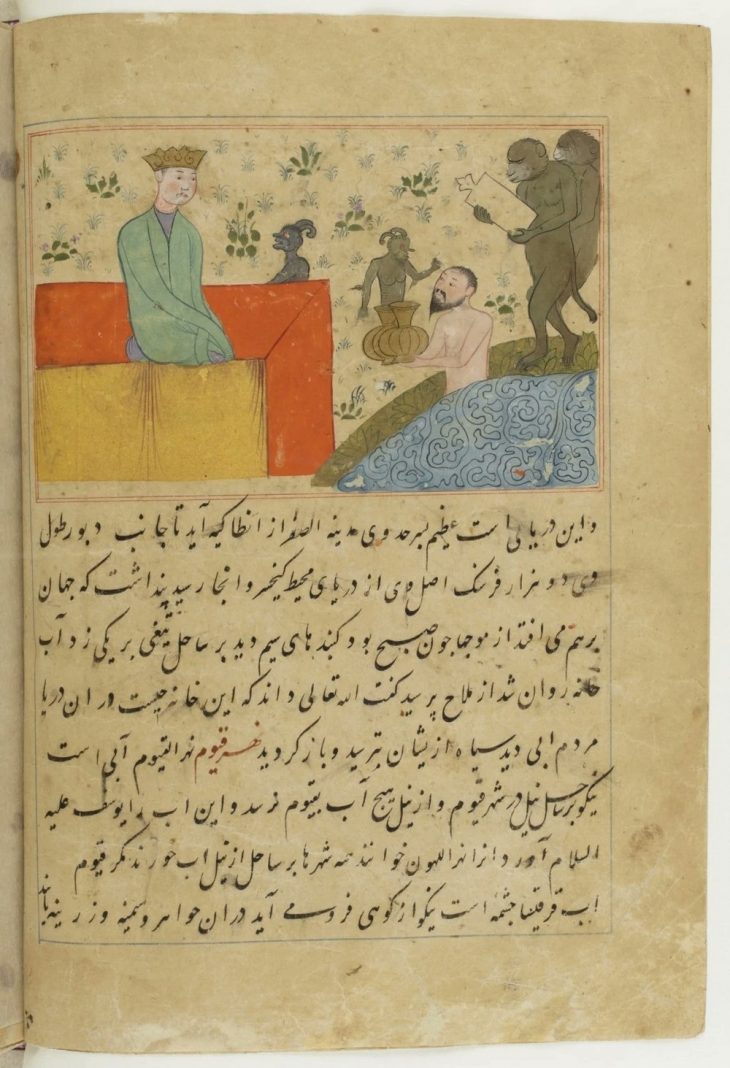 و این دریایی است عظیم بسرحدوی مدینه الصفر از انطاکیه آید تا جانب د بو رطول
وی دو هزار فرسنک اصل وی از دریای محیط کیخسرو انجا رسید پنداشت که جهان
برهم می افتد از موجها جون صبح بود کنبدهای سیم دید بر ساحل یکی بر یکی زد آب
خانه روان شد از ملاح پرسید کفت الله تعالی داند که این خانه جیست و ران دریا
مردم ابی دید سیاه از یشان بترسید و باز کردید نهر قیوم نهر القیوم آبی است
نیکو بر ساحل نیل در شهر قیوم و از نیل هیج آب بقیوم نرسد و این اب را یوسف علیه
السلام آورد و انرا نهر اللهون خوانند همه شهرها بر ساحل از نیل اب خورند مکر قیوم
اب قرقلنا جشمه است نیکو از کوهی فرو می آید دران جواهر و سیمینه و زرینه یابند